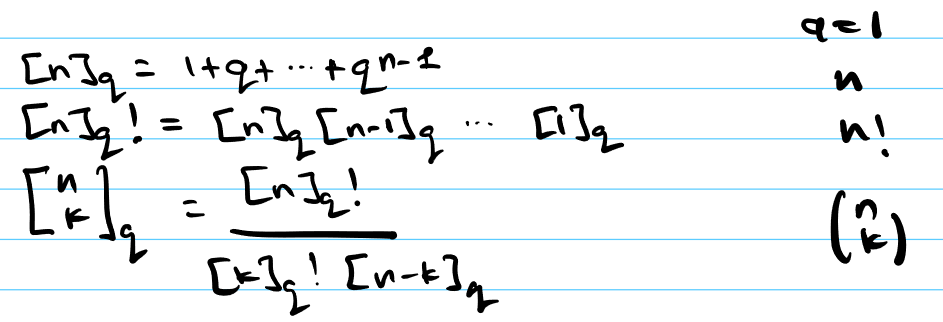 q = 1
[n]_q = 1 + q + ⋯ + q^{n-1} n
[n]_q! = [n]_q [n-1]_q ⋯ [1]_q n!
[n k]_q = [n]_q! / [k]_q! [n-k]_q (n k)